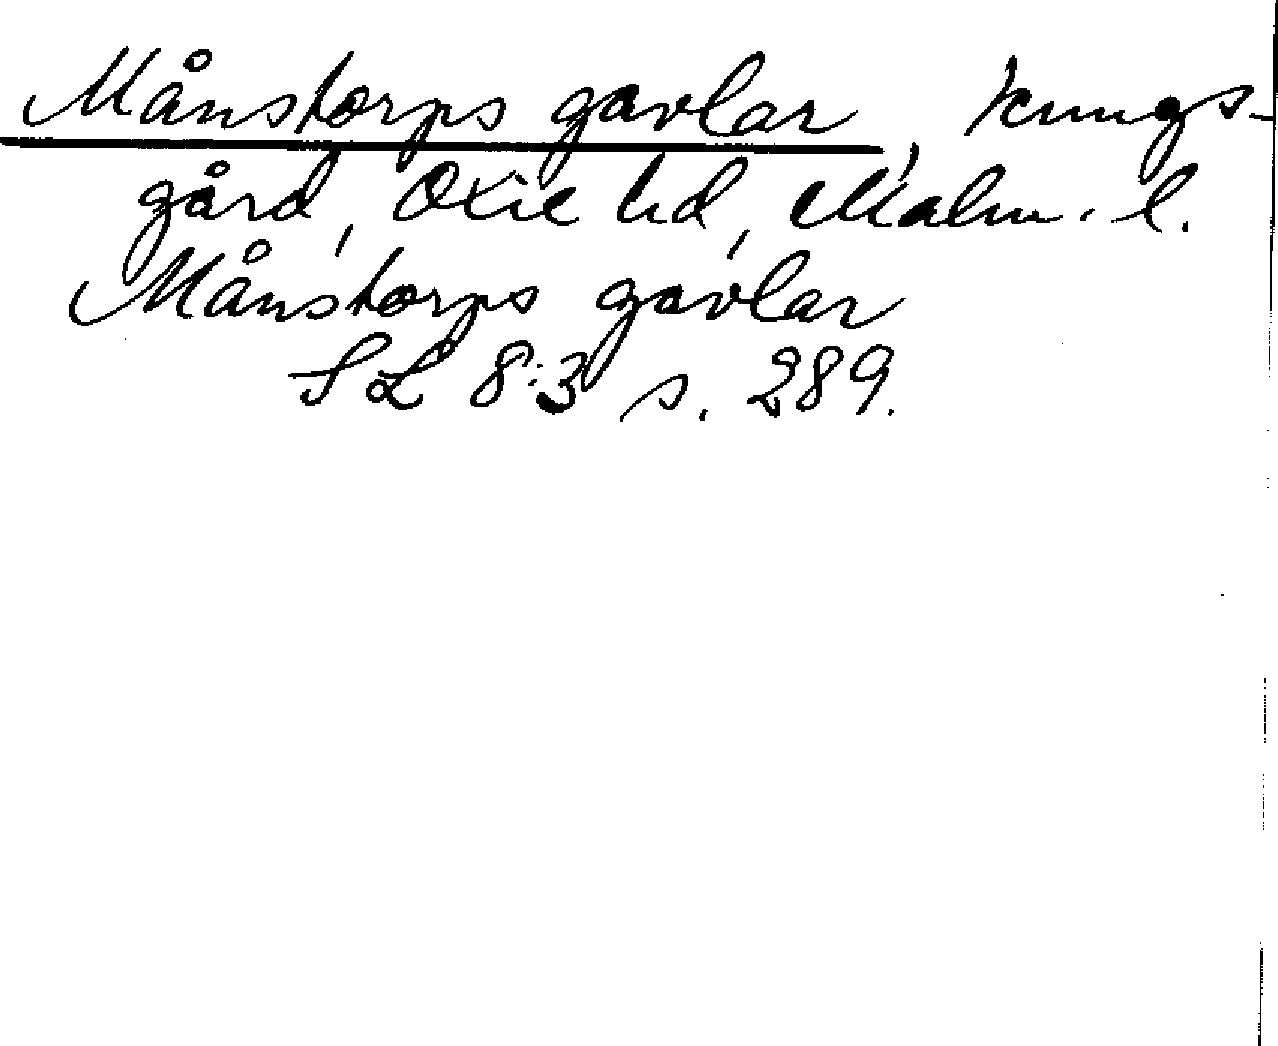 Månstorps gavlar, kungs-
gård, Oxie hd, Malm. l.
Månstorps gavlar
SL 8:3 s. 289.